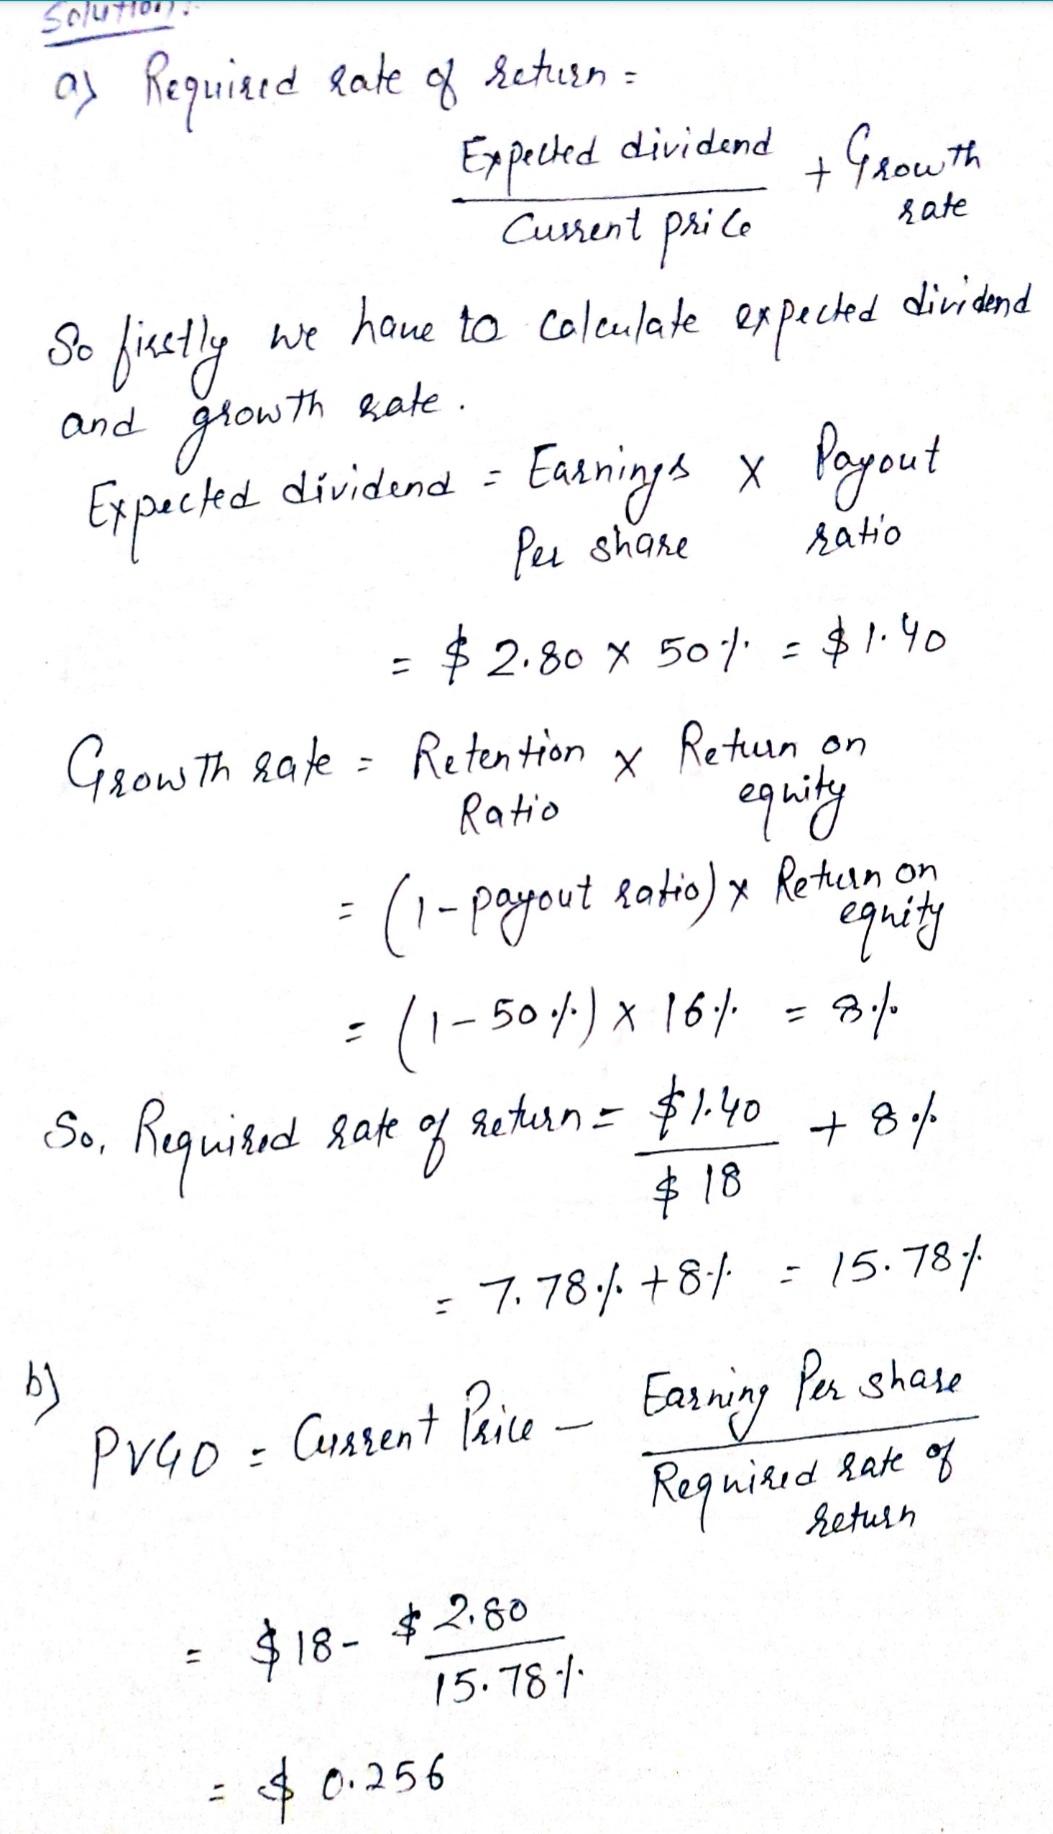 Solution:
a) Required rate of return =
Expected dividend / Current price + Growth rate
So firstly we have to calculate expected dividend
and growth rate.
Expected dividend = Earnings Per share x Payout ratio
= $ 2.80 x 50% = $ 1.40
Growth rate = Retention Ratio x Return on equity
= (1 - payout ratio) x Return on equity
= (1 - 50%) x 16% = 8%
So, Required rate of return = $1.40 / $ 18 + 8%
= 7.78% + 8% = 15.78%
b)
PVGO = Current Price - Earning Per share / Required rate of return
= $ 18 - $ 2.80 / 15.78%
= $ 0.256